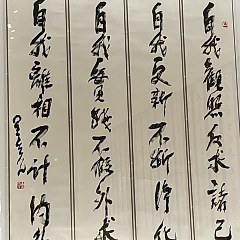 自我觀照反求諸己
自我更新不斷淨化
自我實踐不假外求
自我離相不計內
星雲